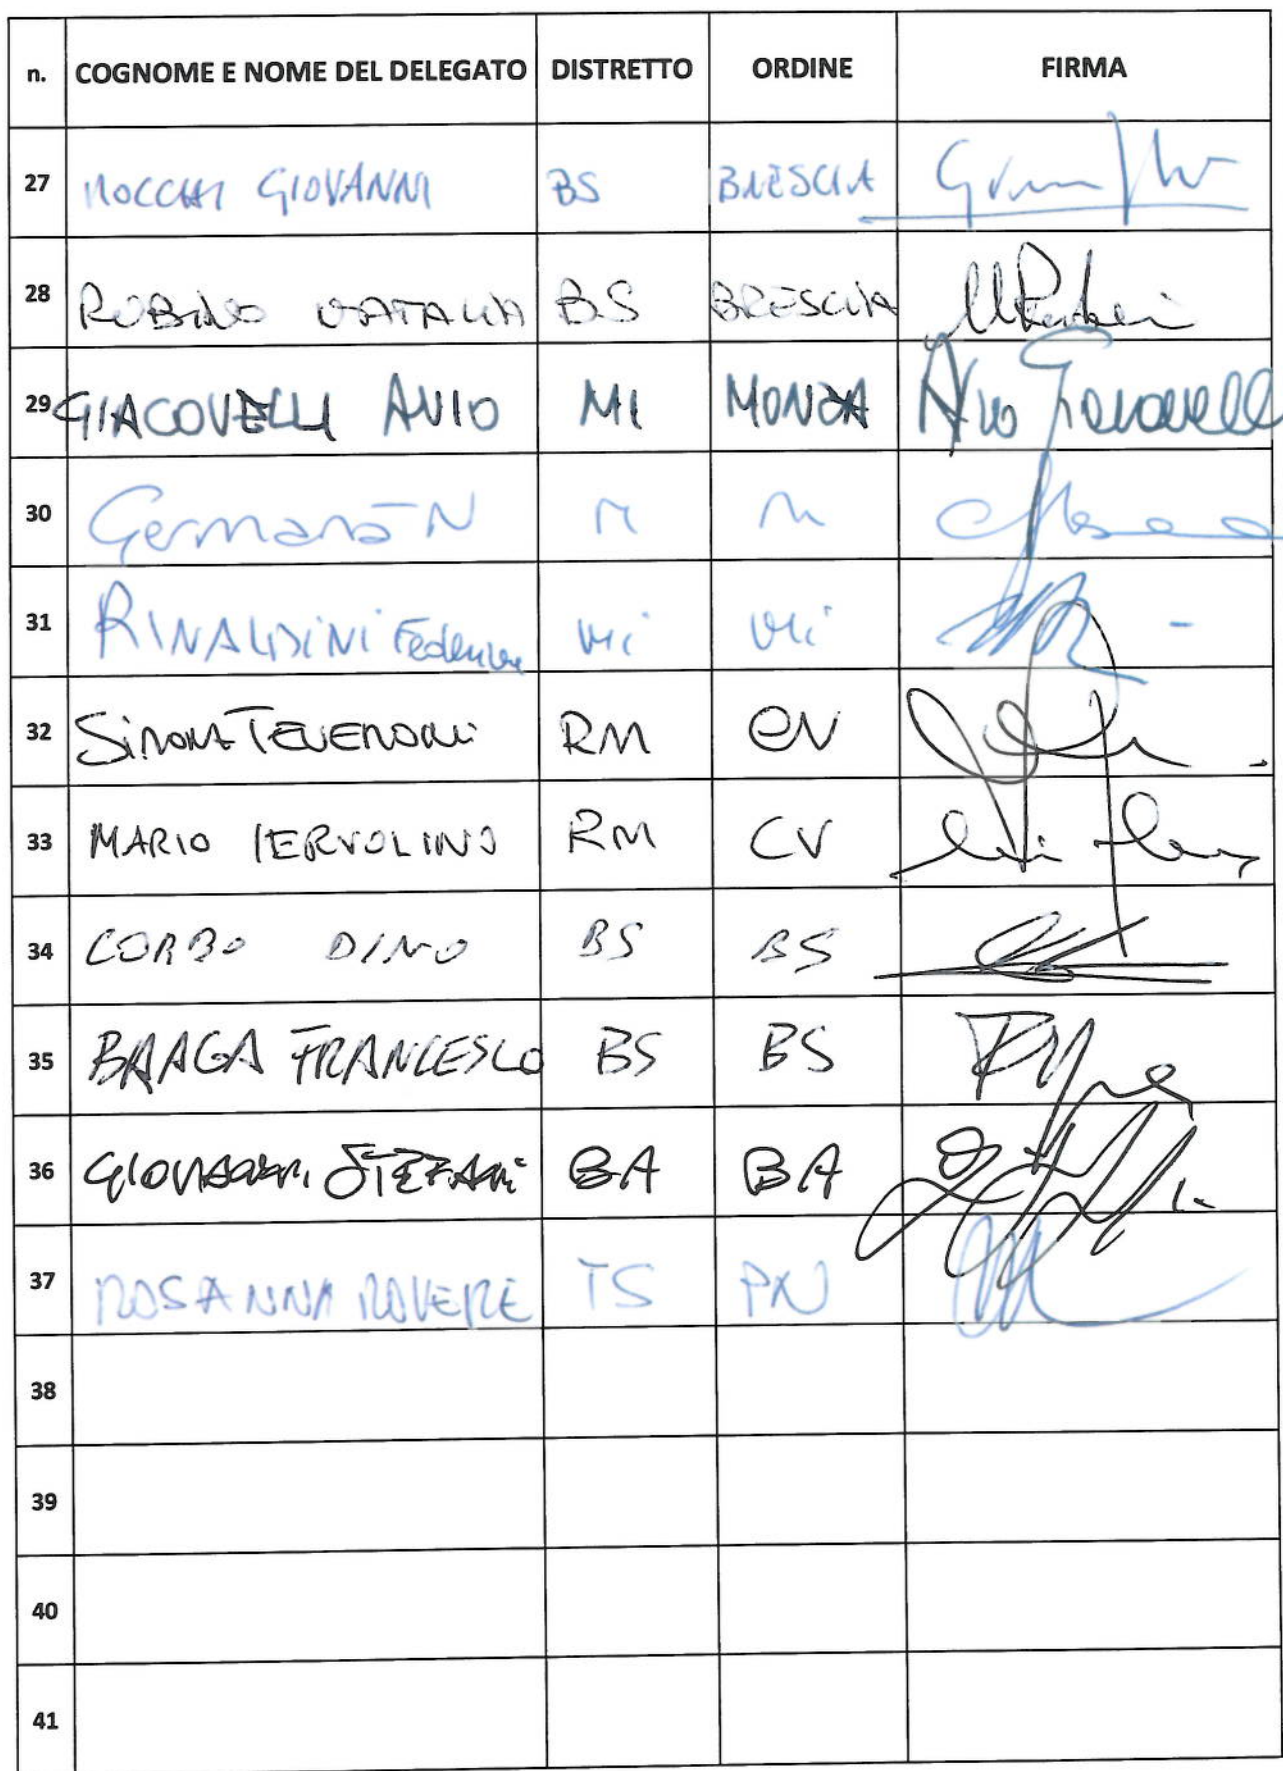 n. COGNOME E NOME DEL DELEGATO DISTRETTO ORDINE FIRMA
27 ROCCHI GIOVANNI BS BRESCIA
28 RUBINO NATALIA BS BRESCIA
29 GIACOVELLI AVIO MI MONZA Avio Giacovelli
30 Germanà N
31 RINALDINI Federica Mi Mi
32 Simona RM CV
33 MARIO IERVOLINO RM CV
34 CORBO DINO BS BS
35 BRAGA FRANCESCO BS BS
36 GIOVANNI STEFANÌ BA BA
37 ROSANNA ROVERE TS PN
38
39
40
41